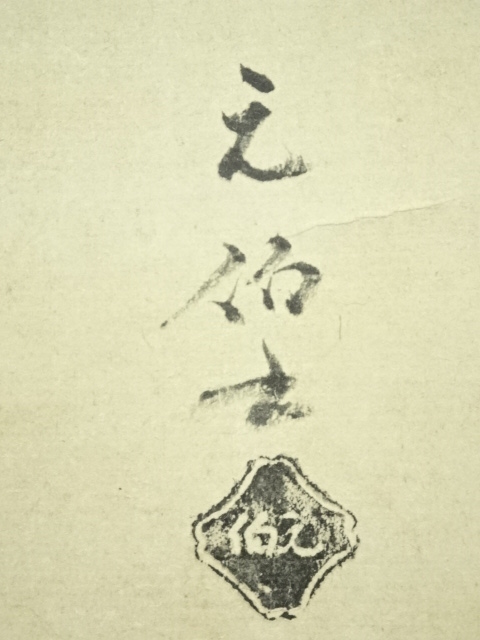 元伯士
元伯